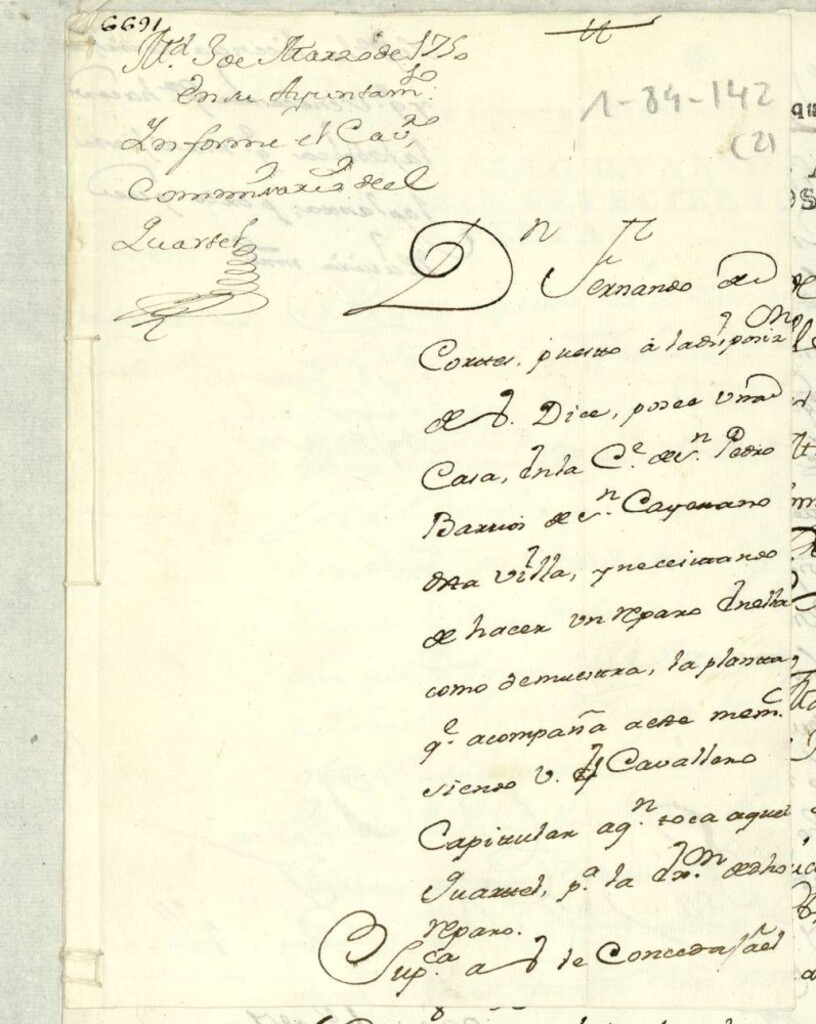 6691
Md. 3 de Marzo de 1750
En su Ayuntam.to
Informe el Cav.o
Commisario del
Quartel
1-84-142
(2)
Dn Fernando de
Cortes, puesto à la disposiz.on
de V. Dice, posee una
Casa, en la C.e de Sn. Pedro
Barrios de Sn. Cayetano
esta villa, y necesitando
de hacer un reparo en ella
como demuestra, la planta,
q.e acompaña a este mem.l
siendo V. el Cavallero
Capitular a q.n toca aquel
Quartel, p.a la ex.on de dho
reparo.
Sup.ca a V. le Conceda la